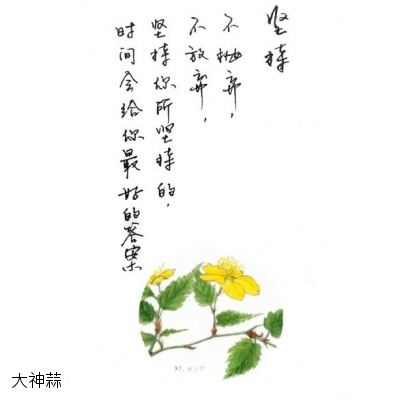 坚持
不抛弃，
不放弃，
坚持你所坚持的，
时间会给你最好的答案
大神蒜